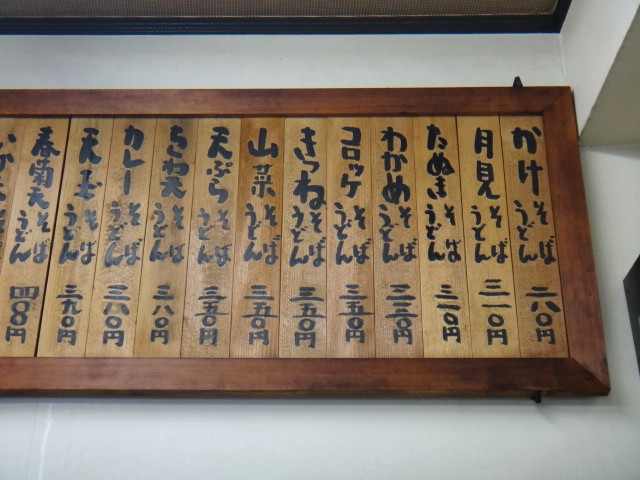 かけ そば うどん 二六〇円
月見 そば うどん 三一〇円
たぬき そば うどん 三一〇円
わかめ そば うどん 三三〇円
コロッケ そば うどん 三五〇円
きつね そば うどん 三五〇円
山菜 そば うどん 三五〇円
天ぷら そば うどん 三五〇円
ちくわ天 そば うどん 三八〇円
カレー そば うどん 三八〇円
天玉 そば うどん 三九〇円
春菊天 そば うどん